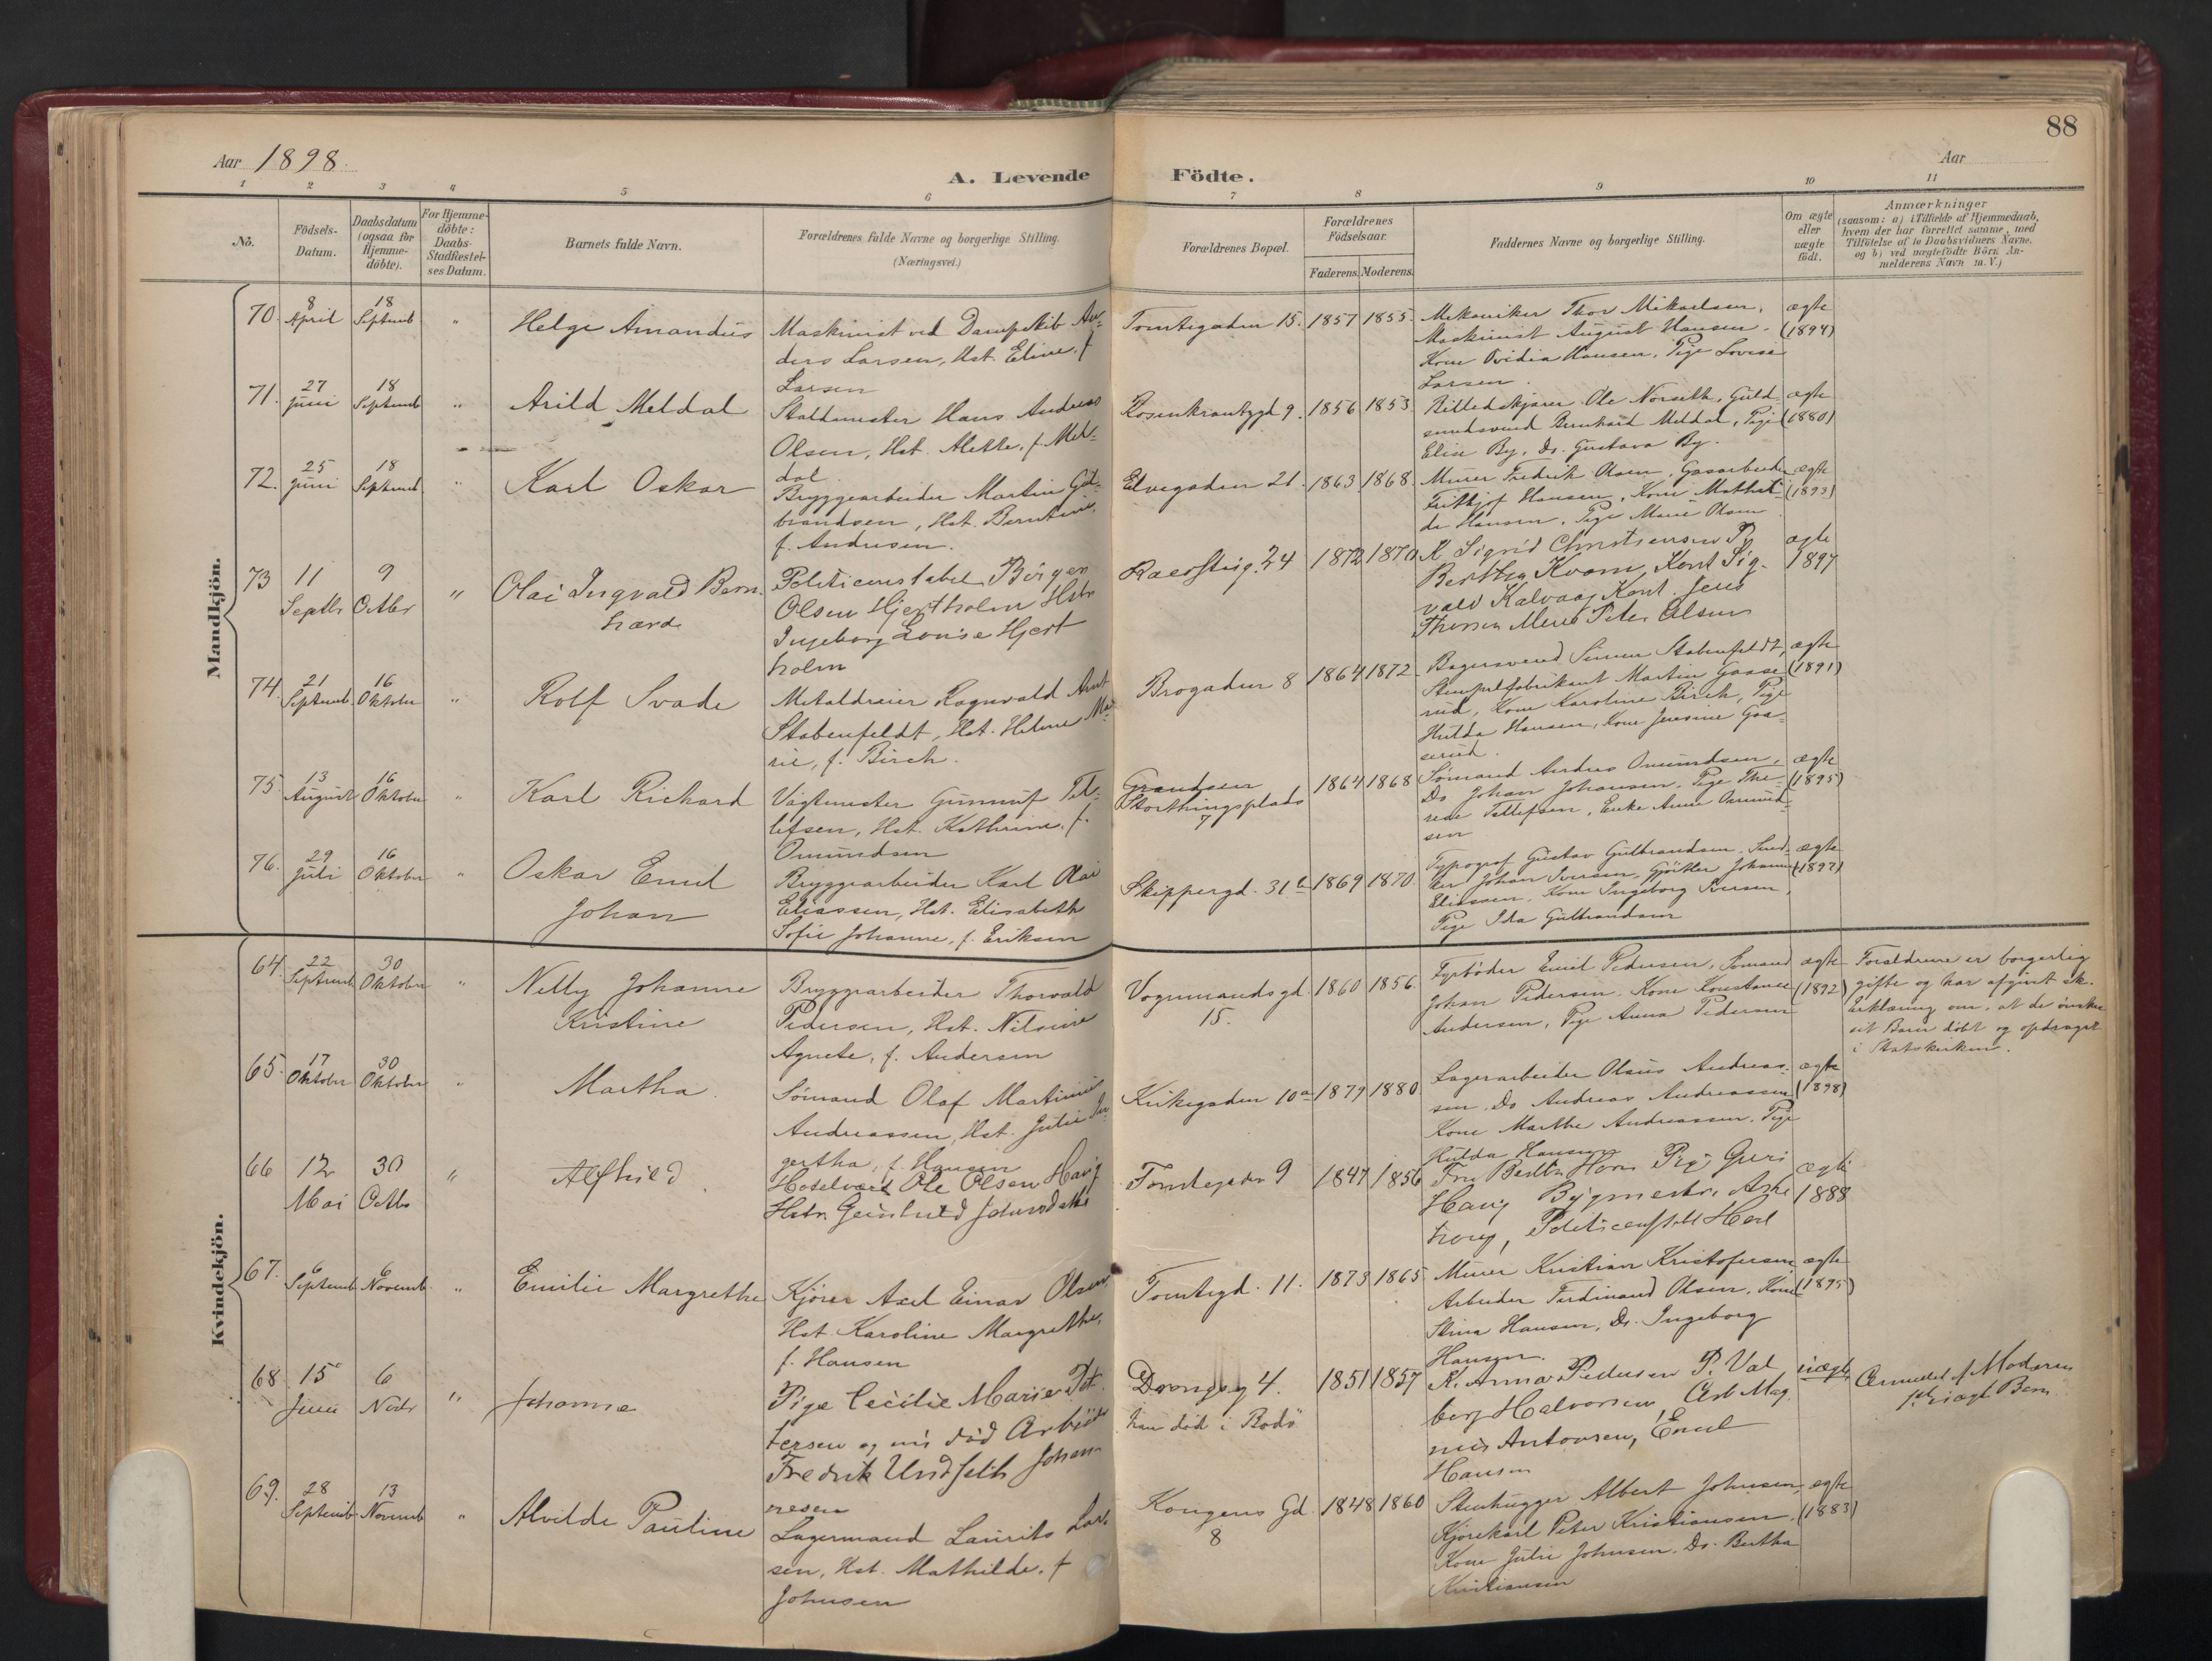 88
Aar 1898.
Aar
A. Levende Födte.
1 2 3 4 5 6 7 8 9 10 11
No.
Födsels-
Datum.
Daabsdatum
(ogsaa for
Hjemme-
döbte).
For Hjemme-
döbte:
Daabs-
Stadfæstel-
ses Datum.
Barnets fulde Navn.
Forældrenes fulde Navne og borgerlige Stilling.
(Næringsvei.)
Forældrenes Bopæl.
Forældrenes
Födselsaar.
Faderens. Moderens.
Faddernes Navne og borgerlige Stilling.
Om ægte
eller
uægte
födt.
Anmærkninger
(saasom: a) i Tilfælde af Hjemmedaab,
hvem der har forrettet samme, med
Tilföielse af to Daabsvidners Navne.
og b) ved uægtefödte Börn An-
melderens Navn m. V.)
Mandkjön.
70. 8 April 18 Septemb " Helge Amandus
Maskinist ved Dampskib An-
ders Larsen, Hst. Eline, f.
Larsen
Tomtegaden 15. 1857 1855.
Mekaniker Thor Mikaelsen,
Maskinist August Hansen.
Kone Ovidia Hansen, Pige Lovise
Larsen.
ægte
(1894)
71. 27 Juni 18 Septemb " Arild Meldal
Staldmester Hans Andreas
Olsen, Hst. Alette, f. Mel-
dal
Rosenkrantzgd 9. 1856 1853.
Billedskjærer Ole Norseth, Guld-
smedsvend Bernhard Meldal, Pige
Elise By, Do. Gustava By.
ægte
(1880)
72. 25 Juni 18 Septemb " Karl Oskar
Bryggearbeider Martin Gul-
brandsen, Hst. Berntine,
f. Andresen.
Elvegaden 21. 1863 1868
Murer Fredrik Olsen, Gasarbeider
Fritjof Hansen, Kone Mathil-
de Hansen, Pige Marie Olsen
ægte
(1893)
73 11 Septbr 9 Octbr " Olai Ingvald Bern-
hard
Politiconstabel Börger
Olsen Hjertholm Hstr
Ingeborg Louise Hjert
holm
24 1872 1870
K Sigrid Christiensen P
Bertha Kvam, Kont Sig-
vald Kalvaag Kont. Jens
Peter Olsen
ægte
1897
74. 21 Septemb 16 Oktober " Rolf Svade
Metaldreier Ragnvald Arnt
Stabenfeldt, Hst. Helene Ma-
rie, f. Birch.
Brogaden 8 1864 1872.
Bagersvend Simen Stabenfeldt,
Stempelfabrikant Martin Gaase-
rud, Kone Karoline Birch, Pige
Hulda Hansen, Kone Jensine Gaa-
serud.
ægte
(1891)
75. 13 August 16 Oktober " Karl Richard
Vagtmester Gunnuf Tel-
lefsen, Hst. Kathrine, f.
Omundsen
Grændsen
Storthingsplads
7
1864 1868
Sømand Andreas Omundsen,
Do Johan Johansen, Pige The-
rese Tellefsen, Enke Anne Omund-
sen
ægte
(1895)
76. 29 Juli 16 Oktober " Oskar Emil
Johan
Bryggearbeider Karl Olai
Eliassen, Hst. Elisabeth
Sofie Johanne, f. Eriksen
Skippergd. 31 b 1869 1870.
Typograf Gustav Gulbrandsen, Sned-
ker Johan Iversen, Gjørtler Johannes
Eliassen, Kone Ingeborg Iversen,
Pige Ida Gulbrandsen
ægte
(1897)
Kvindekjön.
64. 22 Septemb 30 Oktober " Nelly Johanne
Kristine
Bryggearbeider Thorvald
Pedersen, Hst. Nilsine
Agnete, f. Andersen
Vognmandsgd.
15.
1860 1856.
Fyrbøder Emil Pedersen, Sømand
Johan Pedersen, Kone Konstance
Andersen, Pige Anna Pedersen
ægte
(1892)
Forældrene er borgerlig
gifte og har afgivet sk.
Erklæring om, at de ønsker
sit Barn døbt og opdraget
i Statskirken.
65. 17 Oktober 30 Oktober " Martha.
Sømand Olaf Martinius
Andreassen, Hst. Julie In-
gertha, f. Hansen
Kirkegaden 10a 1879 1880.
Lagerarbeider Olaus Andreas-
sen, Do Andreas Andreassen
Kone Marthe Andreassen, Pige
Hulda Hansen
ægte
(1898)
66 12 Mai 30 Octbr " Alfhild
Hotelvert Ole Olsen Haug
Hstr. Gunhild Johnsdatter
Tomtegaden 9 1847 1856
Fru Bertha Horn Pige Guri
Haug Bygmester
ægte
1888
67. 6 Septemb 6 Novemb. " Emilie Margrethe
Kjører Axel Einar Olsen
Hst. Karoline Margrethe,
f. Hansen
Tomtegd. 11. 1873 1865
Murer Kristian Kristofersen
Arbeider Ferdinand Olsen, Kone
Stina Hansen, Do. Ingeborg
Hansen.
ægte
(1895)
68 15 Juni 6 Novbr " Johanne
Pige Cecilie Marie Pet-
tersen og nu død Arbeider
Fredrik Undseth Johan-
nesen
4.
han död i Bodö
1851 1857
K. Anna Pedersen P. Val
borg Halvorsen, Arb Mag-
nus Antonsen, Emil
Hansen
uægte
Anmeldt af Moderen
1ste uægte Barn
69. 28 Septemb. 13 Novemb " Alvilde Pauline
Lagermand Laurits Lar-
sen, Hst. Mathilde, f.
Johnsen
Kongens Gd.
8
1848 1860
Stenhugger Albert Johnsen,
Kjørekarl Peter Kristiansen,
Kone Julie Johnsen, Do. Bertha
Kristiansen
ægte
(1883)